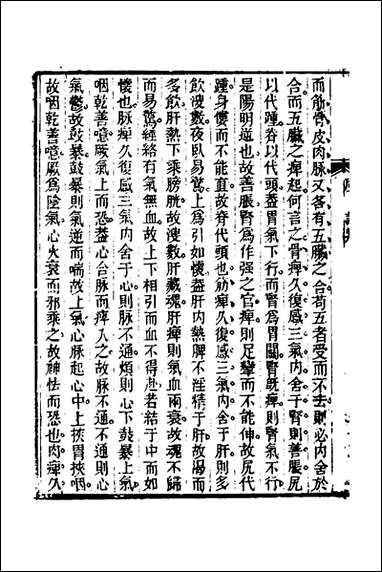 而筋骨皮肉脉又各有五臟之合苟五者受而不去則必內舍於
合而五臟之痺起何言之骨痺久復感三氣內舍于腎則善脹尻
以代踵脊以代頭蓋胃氣下行而腎爲胃關腎旣痺則腎氣不行
是陽明逆也故善脹腎爲作强之官痺則足攣而不能伸故尻代
踵身僂而不能直故脊代頭也筋痺久復感三氣內舍于肝則多
飮溲數夜臥易驚上爲引如懷蓋肝內熱脾不淫精于肝故渴而
多飮肝熱下乘膀胱故溲數肝藏魂肝痺則氣血兩衰故魂不歸
而易驚經絡有氣無血故上下相引而血不得赴若結于中而如
懷也脉痺久復感三氣內舍于心則脉不通煩則心下鼓暴上氣
咽乾善噫厥氣上而恐蓋心合脉而痺入之故脉不通不通則心
氣鬱故鼓暴鼓暴則氣逆而喘故上氣心脉起心中上挾胃挾咽
故咽乾善噫厥爲陰氣心火衰而邪乘之故神怯而恐也肉痺久